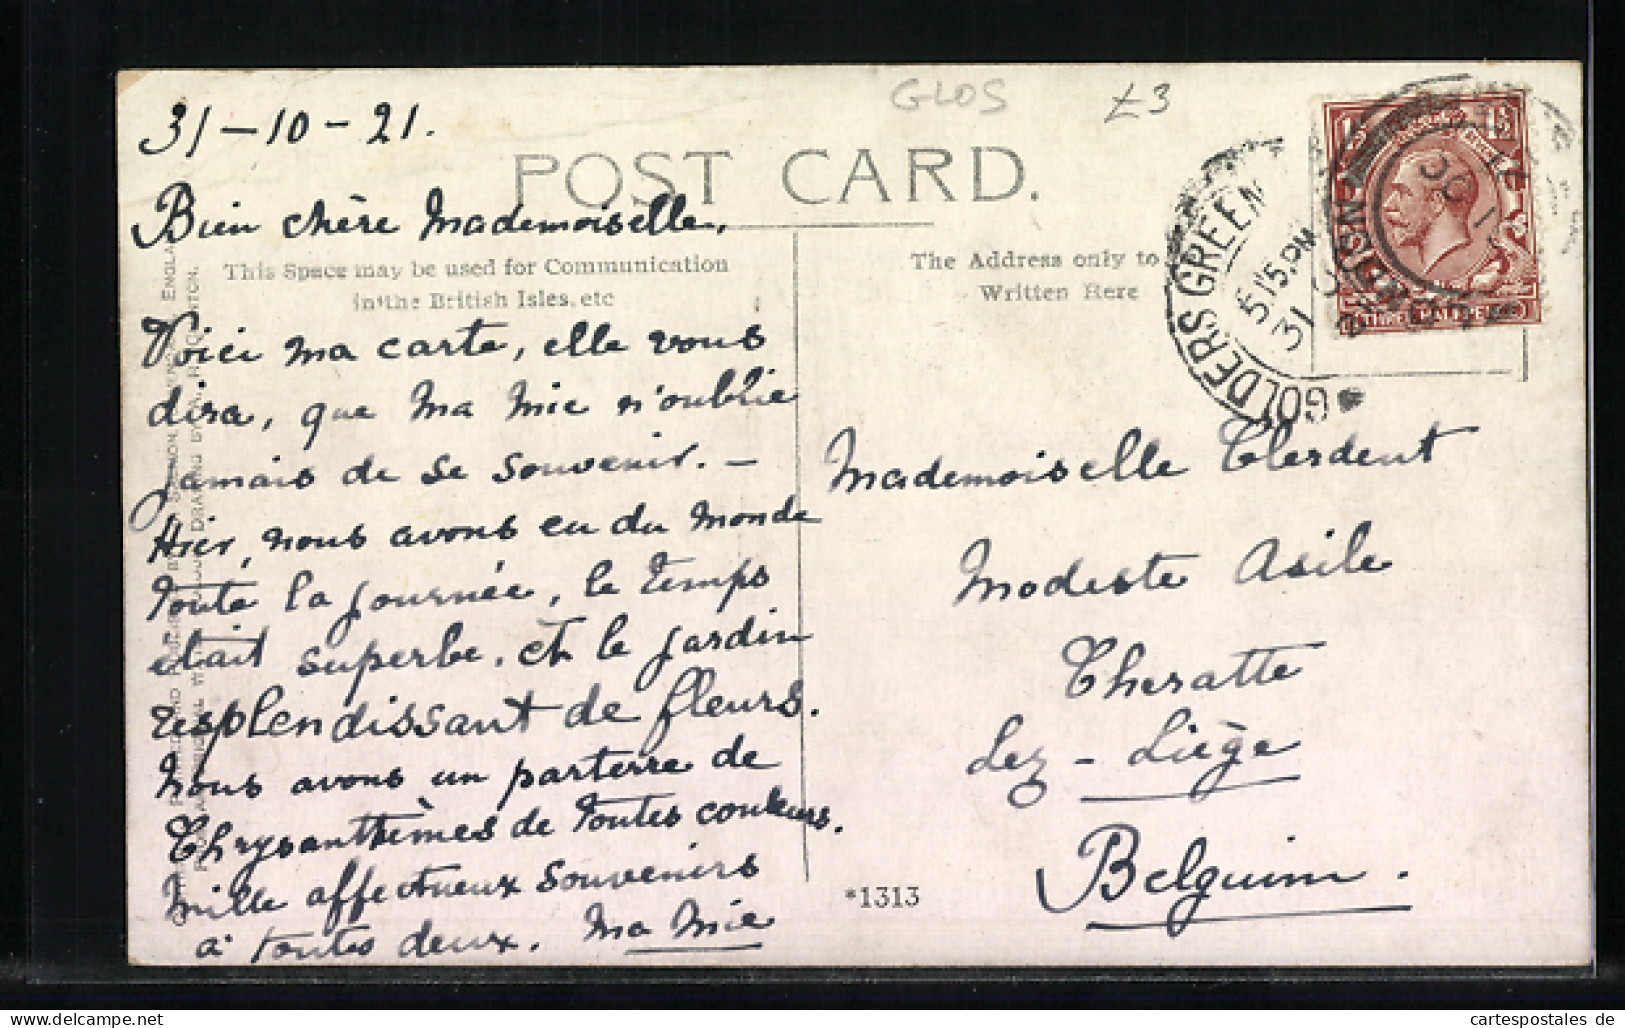 GLOS
£3
31-10-21.
POST CARD.
Bien chère Mademoiselle,
This Space may be used for Communication
in the British Isles, etc
Voici ma carte, elle vous
dira, que Ma Mie n'oublie
jamais de se souvenir. -
Hier, nous avons eu du monde
toute la journée, le temps
était superbe, et le jardin
resplendissant de fleurs.
Nous avons un parterre de
Chrysanthèmes de toutes couleurs.
Mille affectueux souvenirs
à toutes deux. Ma Mie
The Address only to
Written Here
GOLDERS GREEN
5.15 PM
31
THREE HALFPENCE
Mademoiselle Clerdent
Modeste Asile
Cheratte
Lez - Liège
Belguim.
*1313
ENGLA
cartespostales de